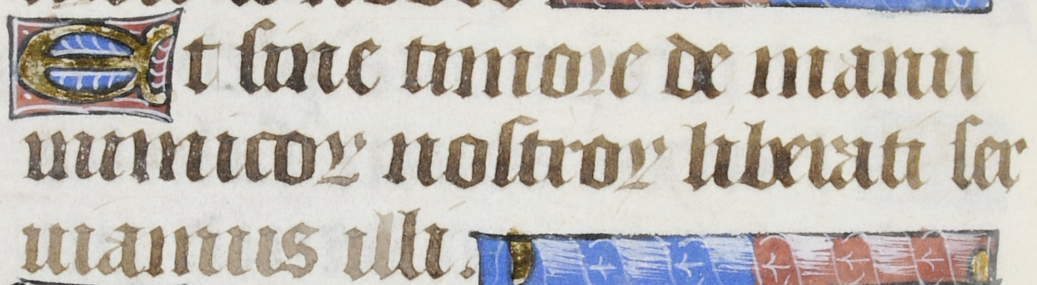 Et sine timore de manu
inimicoꝝ nostroꝝ liberati ser
uiamus illi.